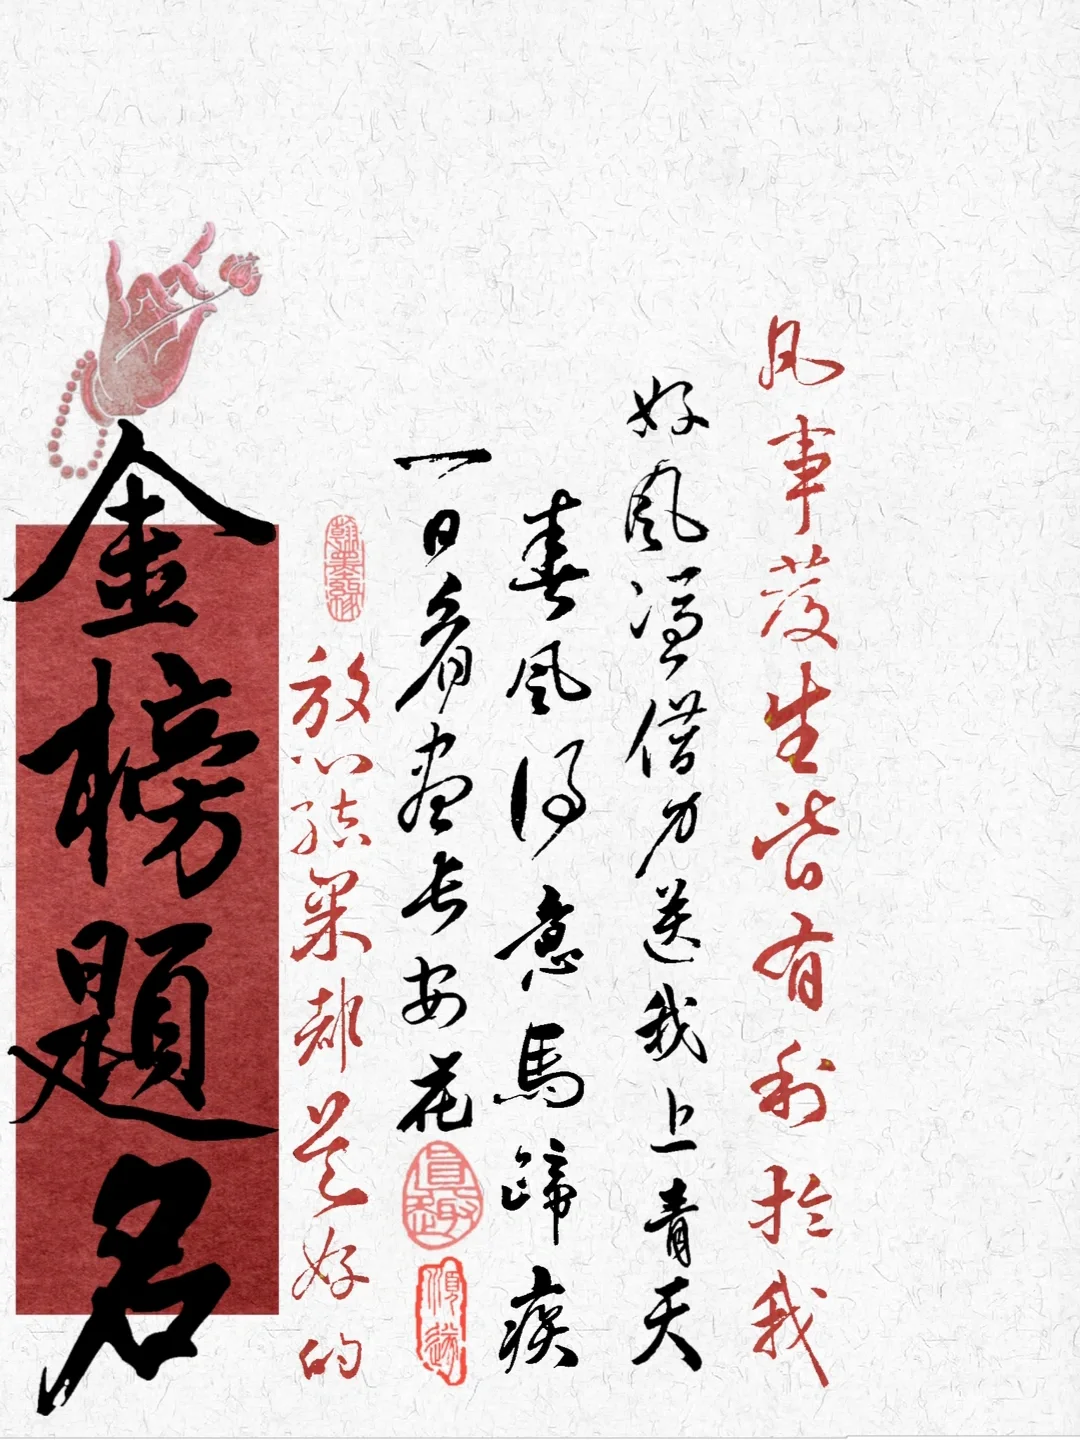 凡事发生皆有利於我
好风凭借力送我上青天
春风得意馬蹄疾
一日看尽长安花
翰墨缘
放心结果都是好的
順遂
金榜題名